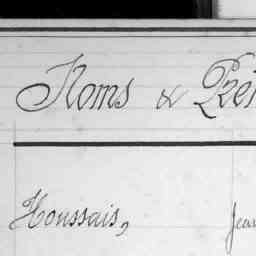 Noms & Pré
Houssais, Jean